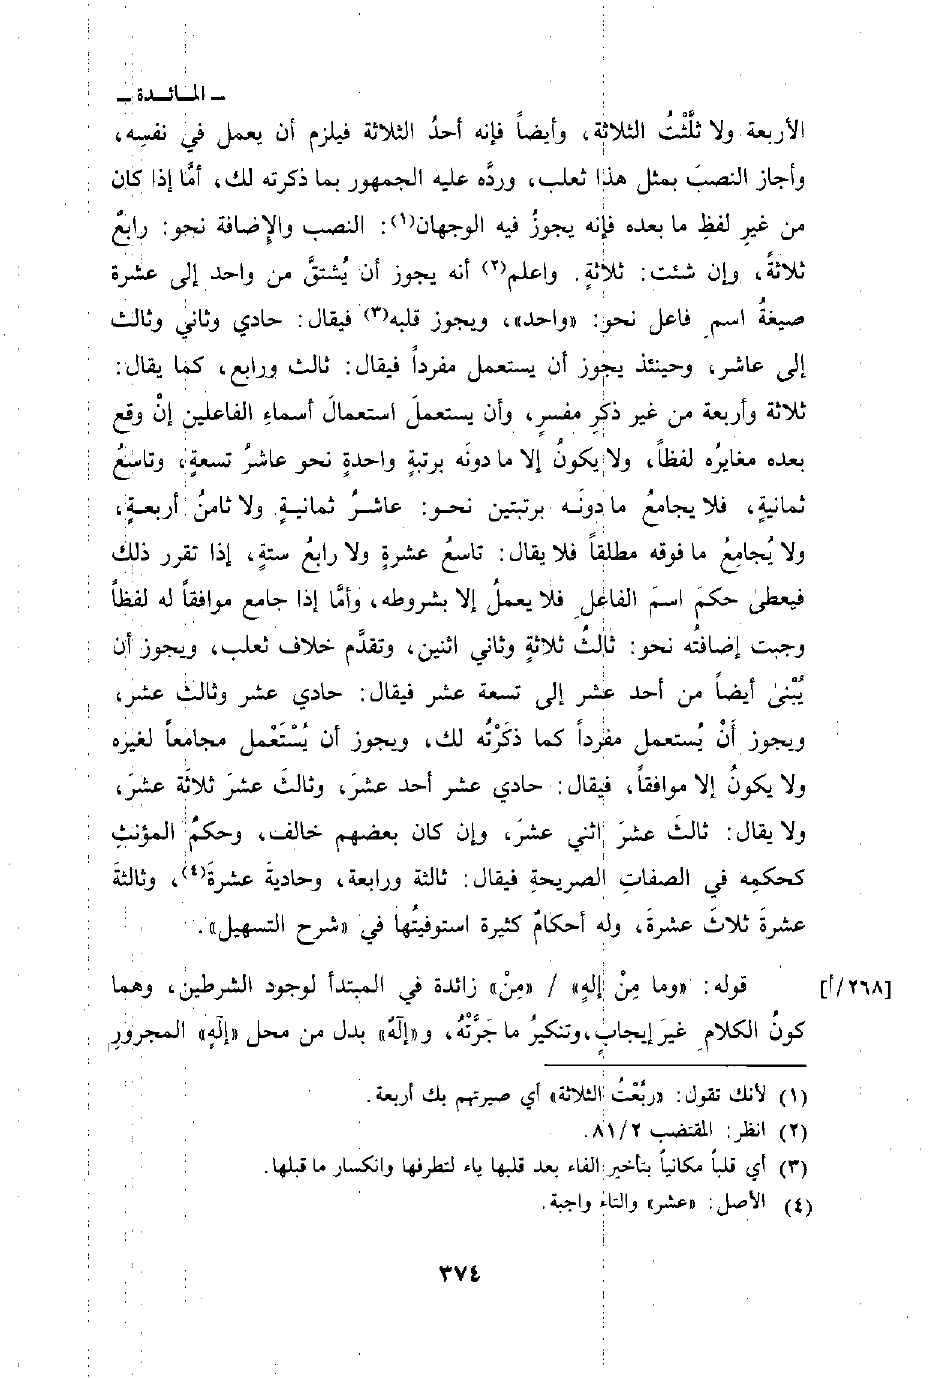 ـ المـائـدة ـ
الأربعة ولا ثلَّثْتُ الثلاثة، وأيضاً فإنه أحدُ الثلاثة فيلزم أن يعمل في نفسِه،
وأجاز النصبَ بمثل هذا ثعلب، وردَّه عليه الجمهور بما ذكرته لك، أمَّا إذا كان
من غيرِ لفظِ ما بعده فإنه يجوزُ فيه الوجهان(١): النصب والإِضافة نحو: رابعٌ
ثلاثةً، وإن شئت: ثلاثةٍ. واعلم(٢) أنه يجوز أن يُشتقَّ من واحد إلى عشرة
صيغةُ اسمِ فاعل نحو: «واحد»، ويجوز قلبه(٣) فيقال: حادي وثاني وثالث
إلى عاشر، وحينئذ يجوز أن يستعمل مفرداً فيقال: ثالث ورابع، كما يقال:
ثلاثة وأربعة من غير ذكرِ مفسرٍ، وأن يستعملَ استعمالَ أسماءِ الفاعلين إنْ وقع
بعده مغايرُه لفظاً، ولا يكونُ إلا ما دونَه برتبةٍ واحدةٍ نحو عاشرُ تسعةٍ، وتاسعُ
ثمانيةٍ، فلا يجامعُ ما دونَـه برتبتين نحـو: عاشـرُ ثمانيـةٍ ولا ثامنُ أربعـةٍ،
ولا يُجامِعُ ما فوقه مطلقاً فلا يقال: تاسعُ عشرةٍ ولا رابعُ ستةٍ، إذا تقرر ذلك
فيعطى حكمَ اسمَ الفاعلِ فلا يعملُ إلا بشروطه، وأمَّا إذا جامع موافقاً له لفظاً
وجبت إضافتُه نحو: ثالثُ ثلاثةٍ وثاني اثنين، وتقدَّم خلاف ثعلب، ويجوز أن
يُبْنىٰ أيضاً من أحد عشر إلى تسعة عشر فيقال: حادي عشر وثالث عشر،
ويجوز أَنْ يُستعمل مفرداً كما ذكَرْتُه لك، ويجوز أن يُسْتَعْمل مجامعاً لغيره
ولا يكونُ إلا موافقاً، فيقال: حادي عشر أحد عشرَ، وثالثَ عشرَ ثلاثَة عشرَ،
ولا يقال: ثالثَ عشرَ اثني عشرَ، وإن كان بعضهم خالف، وحكمُ المؤنثِ
كحكمِه في الصفاتِ الصريحةِ فيقال: ثالثة ورابعة، وحاديةَ عشرة(٤)، وثالثةَ
عشرةَ ثلاثَ عشرةَ، وله أحكامٌ كثيرة استوفيتُها في «شرح التسهيل».
[٢٦٨/أ] قوله: «وما مِنْ إلهٍ» / «مِنْ» زائدة في المبتدأ لوجود الشرطين، وهما
كونُ الكلامِ غيرَ إيجابٍ، وتنكيرُ ما جَرَّتْهُ، و«إلٰهٌ» بدل من محل «إلٰهٍ» المجرورِ
(١) لأنك تقول: «ربَّعْتُ الثلاثة» أي صيرتهم بك أربعة.
(٢) انظر: المقتضب ٢/ ٨١.
(٣) أي قلباً مكانياً بتأخير الفاء بعد قلبها ياء لتطرفها وانكسار ما قبلها.
(٤) الأصل: «عشر» والتاء واجبة.
٣٧٤